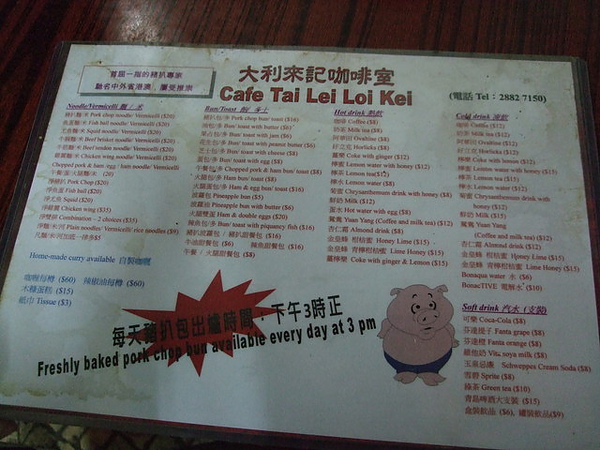 首屈一指的豬扒專家
馳名中外省港澳，屢受推崇
大利來記咖啡室
Cafe Tai Lei Loi Kei
(電話 Tel：2882 7150)
Noodle/Vermicelli 麵 / 米
豬扒麵/米 Pork chop noodle/ Vermicelli ($20)
魚蛋麵/米 Fish ball noodle/ Vermicelli ($20)
Squid noodle/ Vermicelli ($20)
Beef brisket noodle/ Vermicelli ($20)
Beef tendon noodle/ Vermicelli ($20)
Chicken wing noodle/ Vermicelli ($20)
Chopped pork & ham /egg / ham noodle/ Vermicelli
($20)
淨豬扒 Pork Chop ($20)
淨魚蛋 Fish ball ($20)
Squid ($20)
Chicken wing ($35)
淨雙併 Combination – 2 choices ($35)
淨麵/米/河 Plain noodle/ Vermicelli/ rice noodles ($9)
$5
Home-made curry available 自製咖喱
咖喱每樽 ($60) 辣椒油每樽 ($60)
木糠蛋糕 ($15)
紙巾 Tissue ($3)
Bun/Toast 飽/ 多士
豬扒包/多 Pork chop bun/ toast ($16)
Bun/ toast with butter ($6)
Bun/ toast with jam ($6)
Bun/ toast with peanut butter ($6)
Bun/ toast with cheese ($8)
蛋包/多 Bun/ toast with egg ($8)
午餐包/多 Chopped pork & ham bun/ toast ($8)
火腿包/多 Ham bun/ toast ($8)
火腿蛋包/多 Ham & egg bun/ toast ($16)
菠蘿包 Pineapple bun ($5)
Pineapple bun with butter ($6)
火腿雙蛋 Ham & double eggs ($20)
Bun/ toast with piquancy fish ($16)
($16)
($16)
($8)
Hot drink 熱飲
咖啡 Coffee ($8)
奶茶 Milk tea ($8)
阿華田 Ovaltine ($8)
好立克 Horlicks ($8)
薑樂 Coke with ginger ($12)
檸蜜 Lemon water with honey ($12)
檸茶 Lemon tea($12)
檸水 Lemon water ($8)
菊蜜 Chrysanthemum drink with honey ($8)
鮮奶 Milk ($12)
蛋水 Hot water with egg ($8)
鴛鴦 Yuan Yang (Coffee and milk tea) ($12)
杏仁霜 Almond drink ($8)
金皇蜂 柑桔蜜 Honey Lime ($15)
金皇蜂 青檸柑桔蜜 Honey Lime ($15)
薑檸樂 Coke with ginger & Lemon ($15)
Cold drink 凍飲
咖啡 Coffee ($12)
奶茶 Milk tea ($12)
阿華田 Ovaltine ($12)
好立克 Horlicks ($12)
檸樂 Coke with lemon ($12)
檸蜜 Lemon water with honey ($12)
檸茶 Lemon tea ($15)
檸水 Lemon water ($12)
菊蜜 Chrysanthemum drink with honey
($12)
鮮奶 Milk ($15)
鴛鴦 Yuan Yang
(Coffee and milk tea) ($12)
杏仁霜 Almond drink ($12)
金皇蜂 柑桔蜜 Honey Lime ($15)
金皇蜂 青檸柑桔蜜 Honey Lime ($15)
Bonaqua water 水 ($6)
BonacTIVE ($10)
Soft drink 汽水 (支裝)
可樂 Coca-Cola ($8)
芬達提子 Fanta grape ($8)
芬達橙 Fanta orange ($8)
維他奶 Vita soya milk ($8)
玉泉忌廉 Schweppes Cream Soda ($8)
雪碧 Sprite ($8)
綠茶 Green tea ($10)
青島啤酒大支裝 ($15)
盒裝飲品 ($6), 罐裝飲品($9)
每天豬扒包出爐時間：下午3時正
Freshly baked pork chop bun available every day at 3 pm